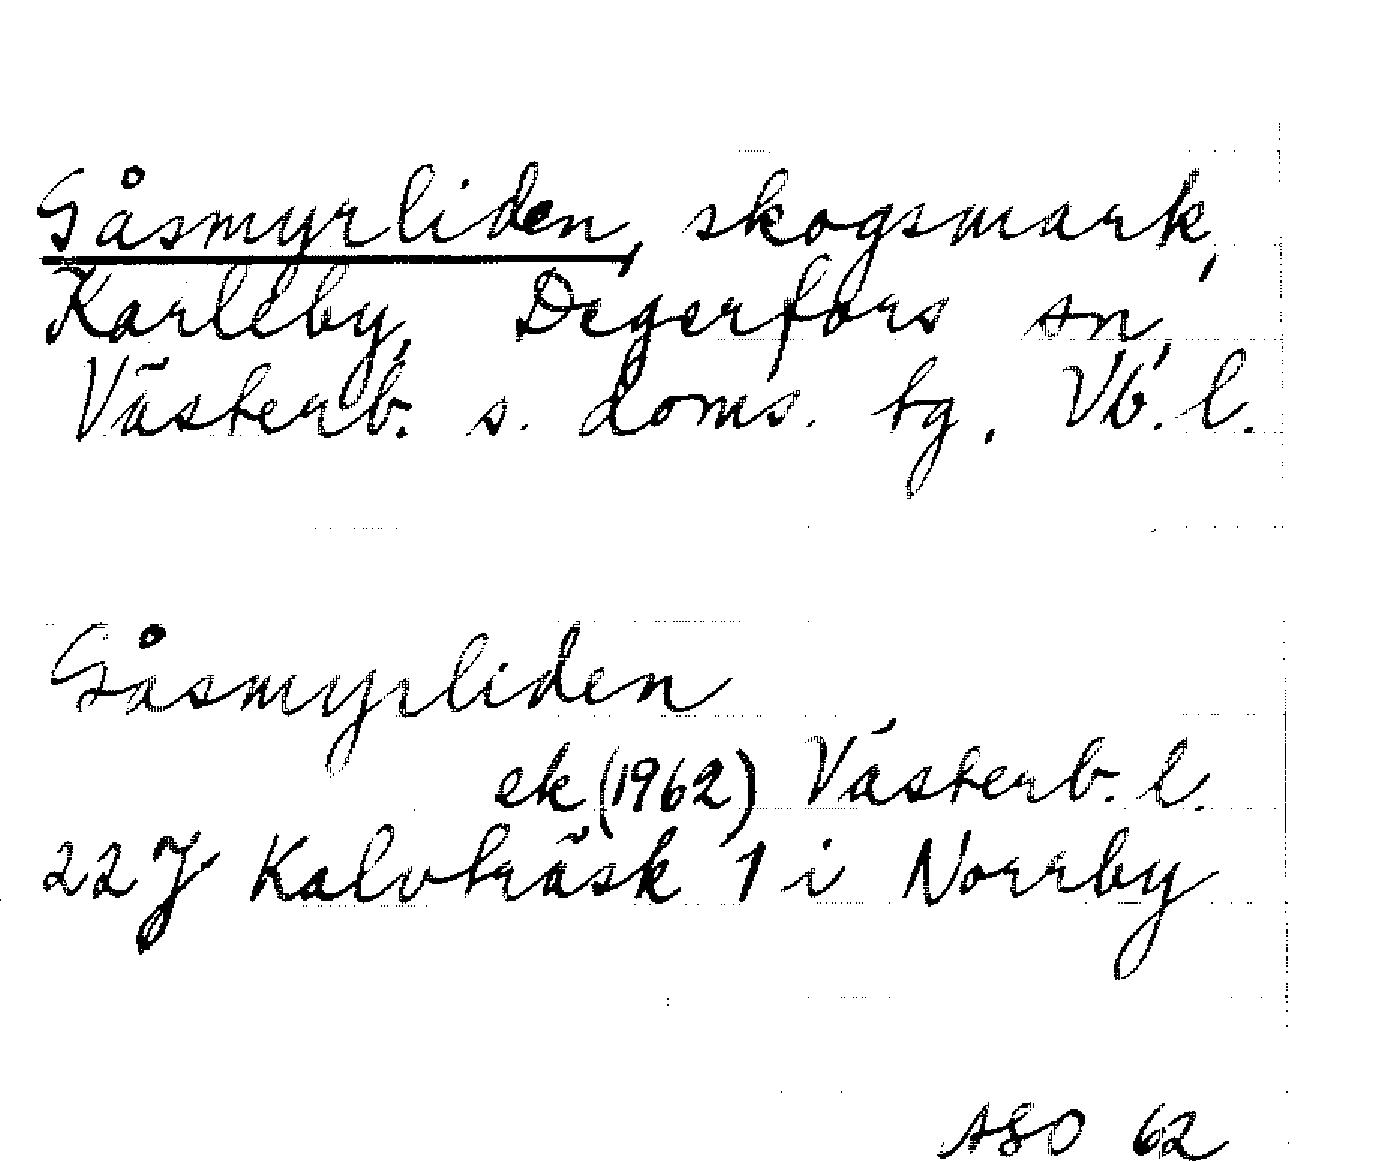 Gåsmyrliden, skogsmark,
Karleby, Degerfors sn,
Västerb. s. doms. tg, Vb. l.
Gåsmyrliden
ek (1962) Västerb. l.
22 J Kalvträsk 1 i Norrby
ASO 62